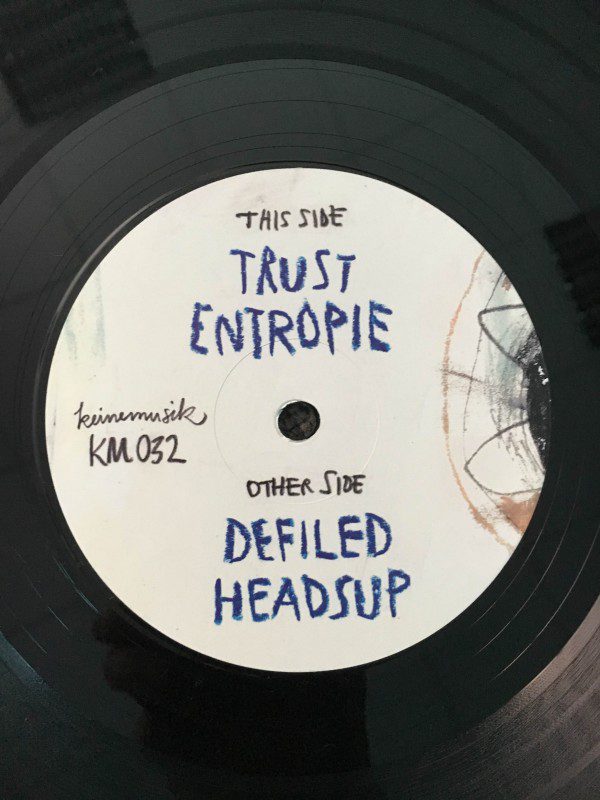 THIS SIDE
TRUST
ENTROPIE
keinemusik
KM 032
OTHER SIDE
DEFILED
HEADSUP